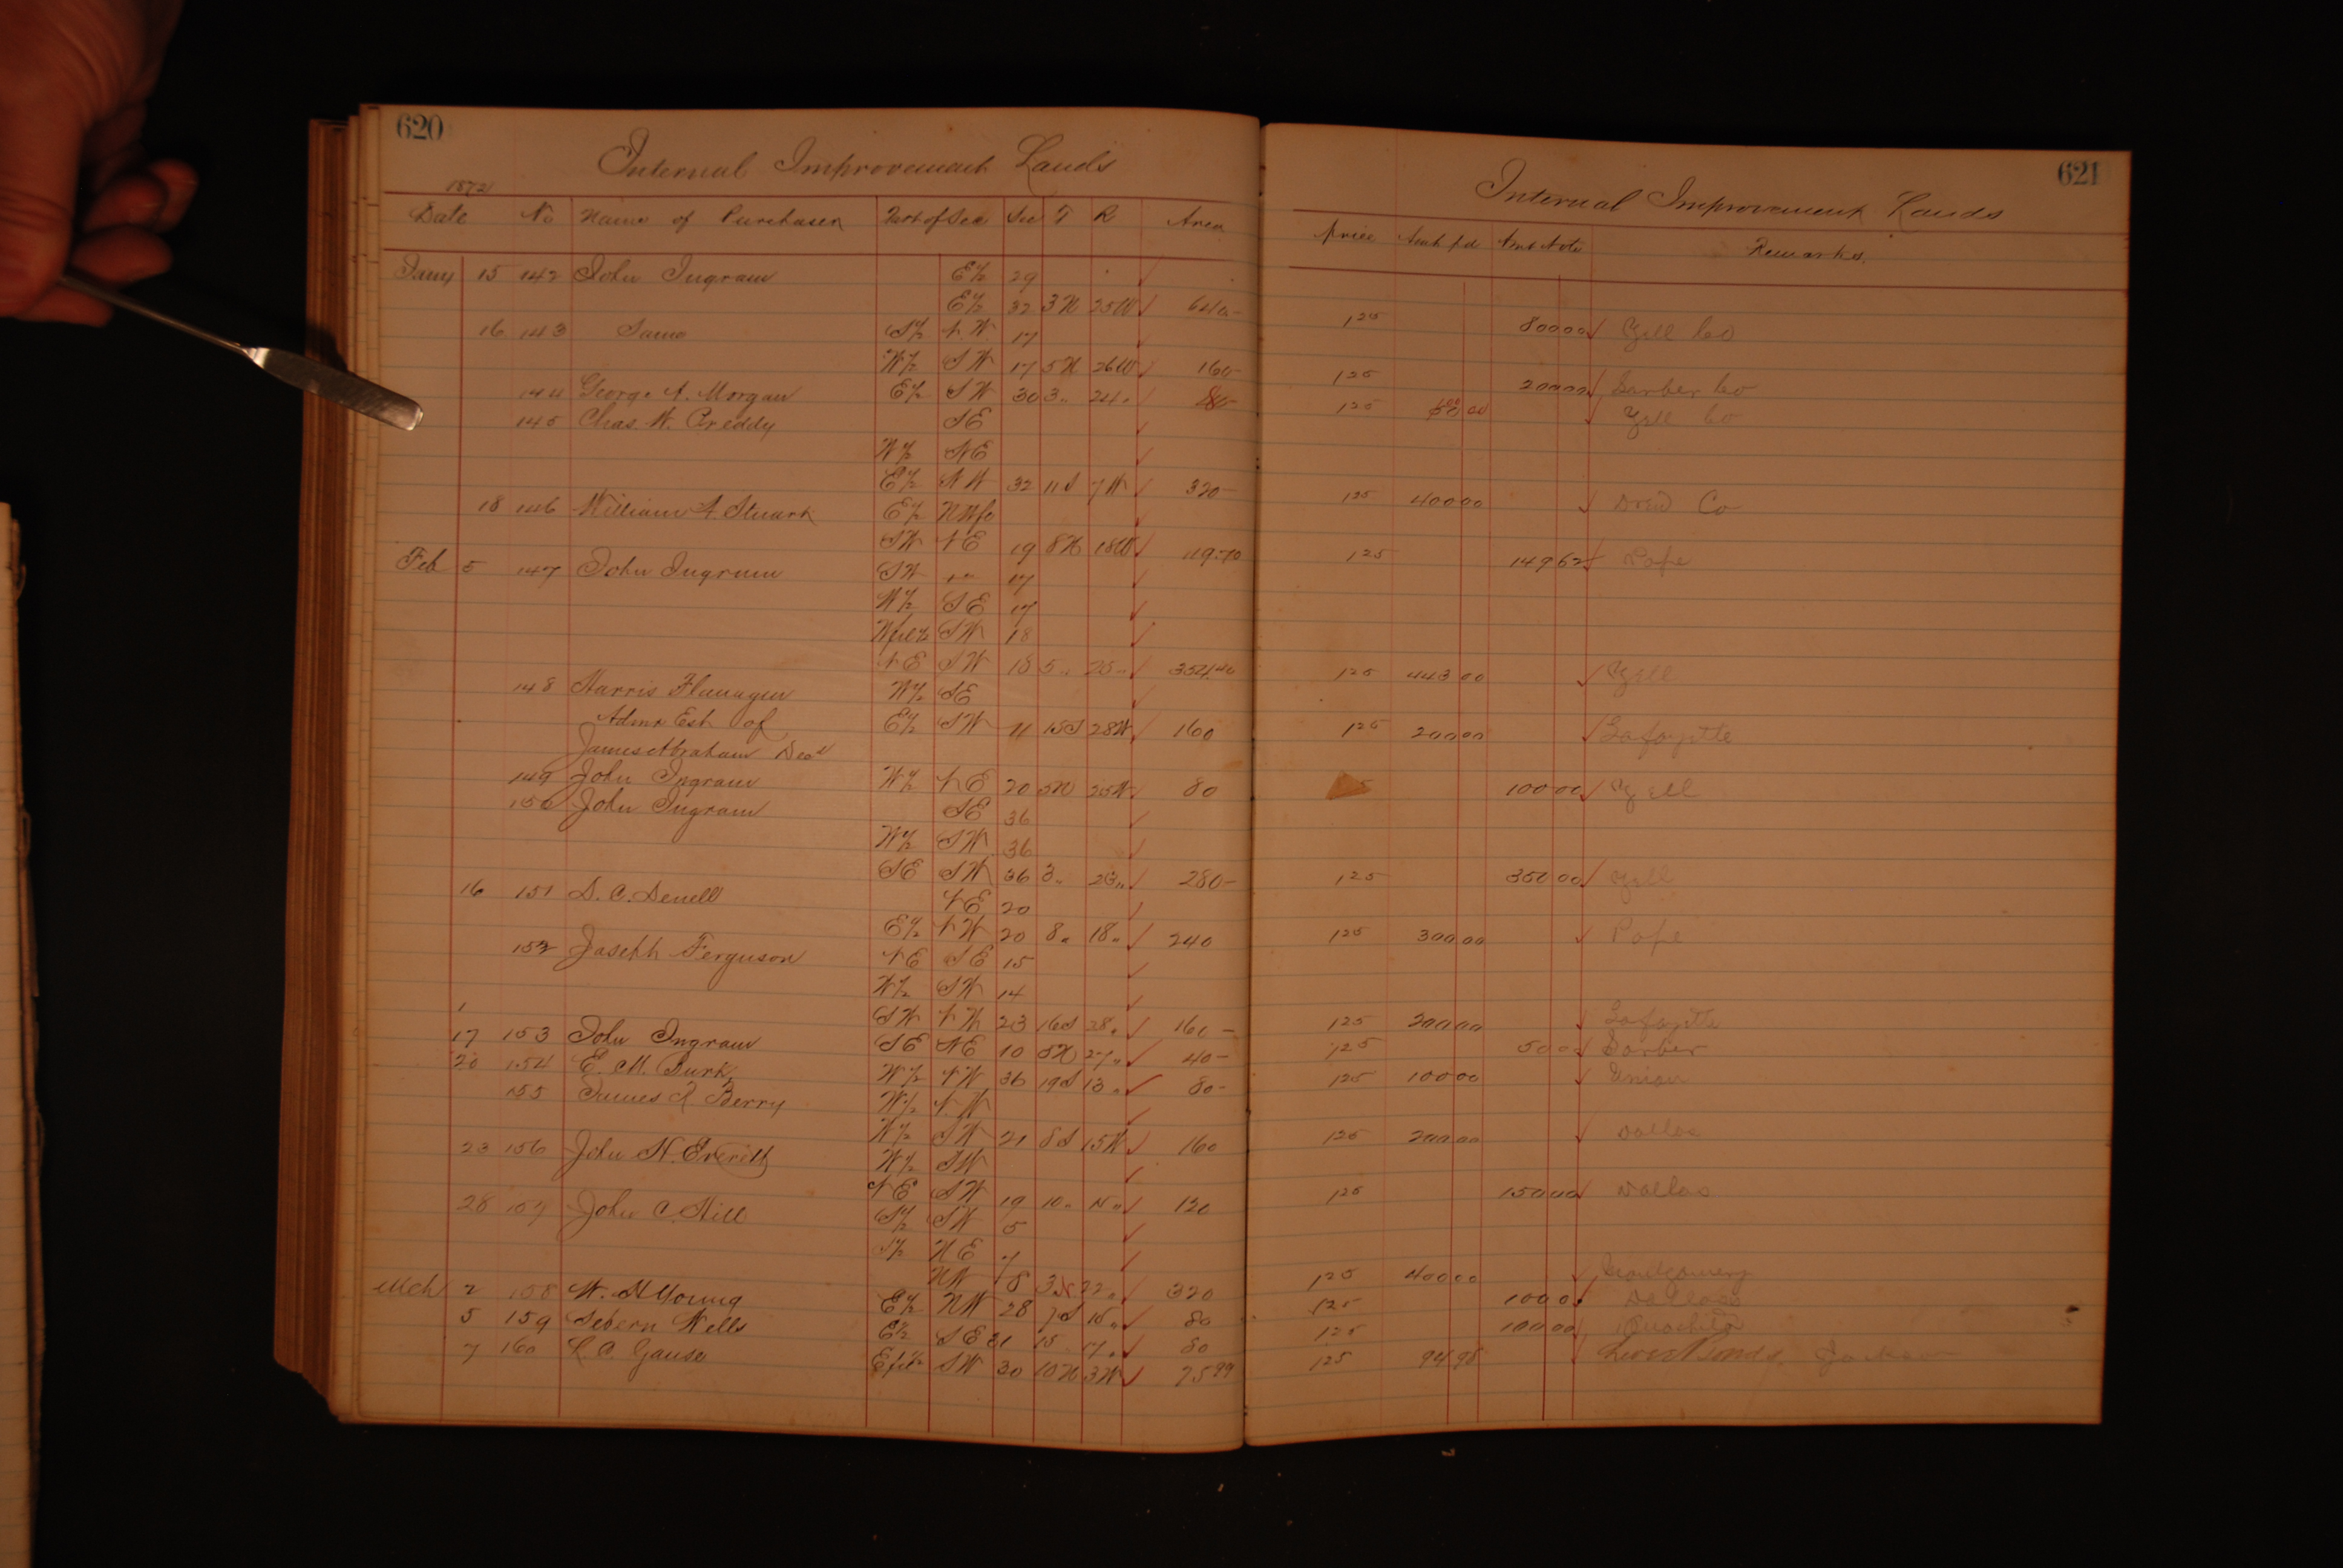 620
Internal Improvement Lands
1872
Date No Name of Purchaser Part of Sec Sec T R Area
Jany 15 142 John Ingram E½ 29
E½ 32 3N 25W 640-
16 143 Same S½ N.W. 17
W½ SW 17 5N 26W 160-
144 George A. Morgan E½ SW 30 3" 24" 80-
145 Chas. W. Preddy SE
W½ NE
E½ NW 32 11S 7W 320-
18 146 William A. Stuart E½ NWfr
SW NE 19 8N 18W 119.70
Feb 5 147 John Ingram SW 17
W½ SE 17
SW 18
NE SW 18 5" 25" 354.40
148 Harris Flanagin W½ SE
Admr Est of E½ SW 11 15S 28W 160
James Abraham Decd
149 John Ingram W½ NE 20 5N 25W 80
150 John Ingram SE 36
W½ SW 36
SE SW 36 3" 23" 280-
16 151 D. C. Denell NE 20
E½ NW 20 8" 18" 240
152 Joseph Ferguson NE SE 15
W½ SW 14
SW NW 23 16S 28" 160-
17 153 John Ingram SE NE 10 5N 27" 40-
20 154 E. M. Burk W½ NW 36 19S 13" 80-
155 James R Berry W½ N.W
W½ SW 21 8S 15W 160
23 156 John N. Everitt W½ SW
NE SW 19 10" 120
28 157 John C. Hill S½ SW 5
S½ NE 7
NW 8 3N 22" 320
Mch 2 158 W. H Young E½ NW 28 7S 80
5 159 Sebern Wells E½ SE 31 15 17" 80
7 160 L C. Gause SW 30 10N 3W 75 99
621
Internal Improvement Lands
Price Amt pd Amt Note Remarks
125 800 00 Yell Co
125 200 00 Sarber Co
125 100 00 Yell Co
125 400 00 Drew Co
125 149 62 Pope
125 443 00 Yell
125 200 00 Lafayette
5 100 00 Yell
125 350 00 Yell
125 300 00 Pope
125 200 00 Lafayette
125 50 00 Sarber
125 100 00 Union
125 200 00 Dallas
125 150 00 Dallas
125 400 00 Montgomery
125 100 0 Dallas
125 100 00 Ouachita
125 94 98 Jackson